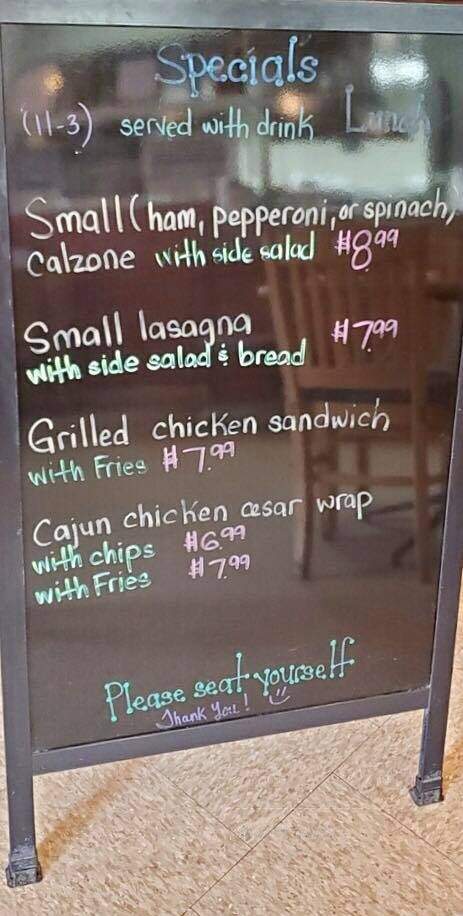 Specials
(11-3) served with drink Lunch
Small (ham, pepperoni, or spinach)
Calzone with side salad $8.99
Small lasagna $7.99
with side salad & bread
Grilled chicken sandwich
with Fries $7.99
Cajun chicken cesar wrap
with chips $6.99
with Fries $7.99
Please seat yourself
Thank You!